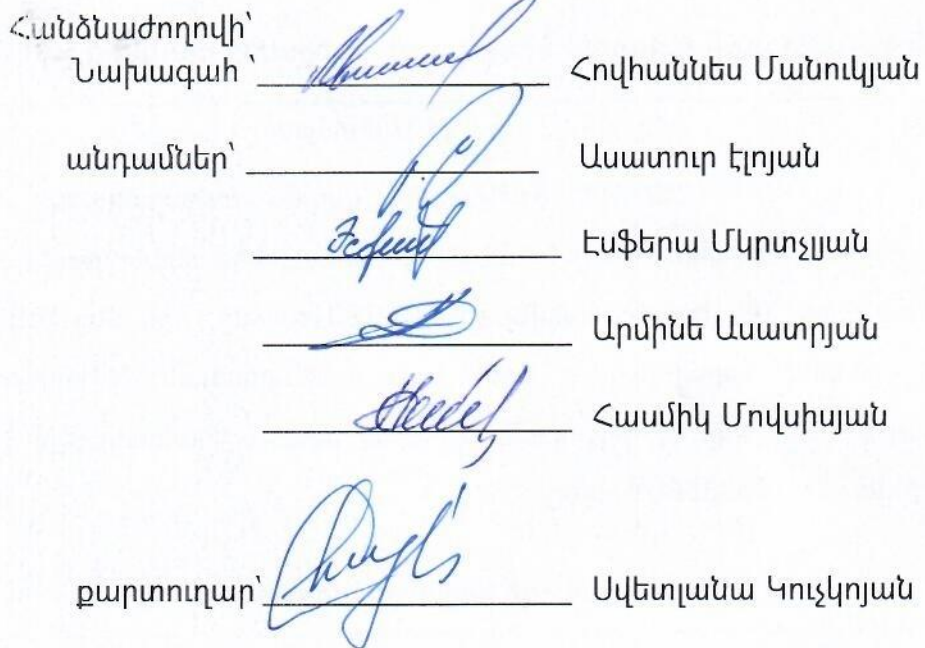 Հանձնաժողովի՝
Նախագահ՝ Հովհաննես Մանուկյան
անդամներ՝ Ասատուր Էլոյան
Էսֆերա Մկրտչյան
Արմինե Ասատրյան
Հասմիկ Մովսիսյան
քարտուղար՝ Սվետլանա Կուչկոյան